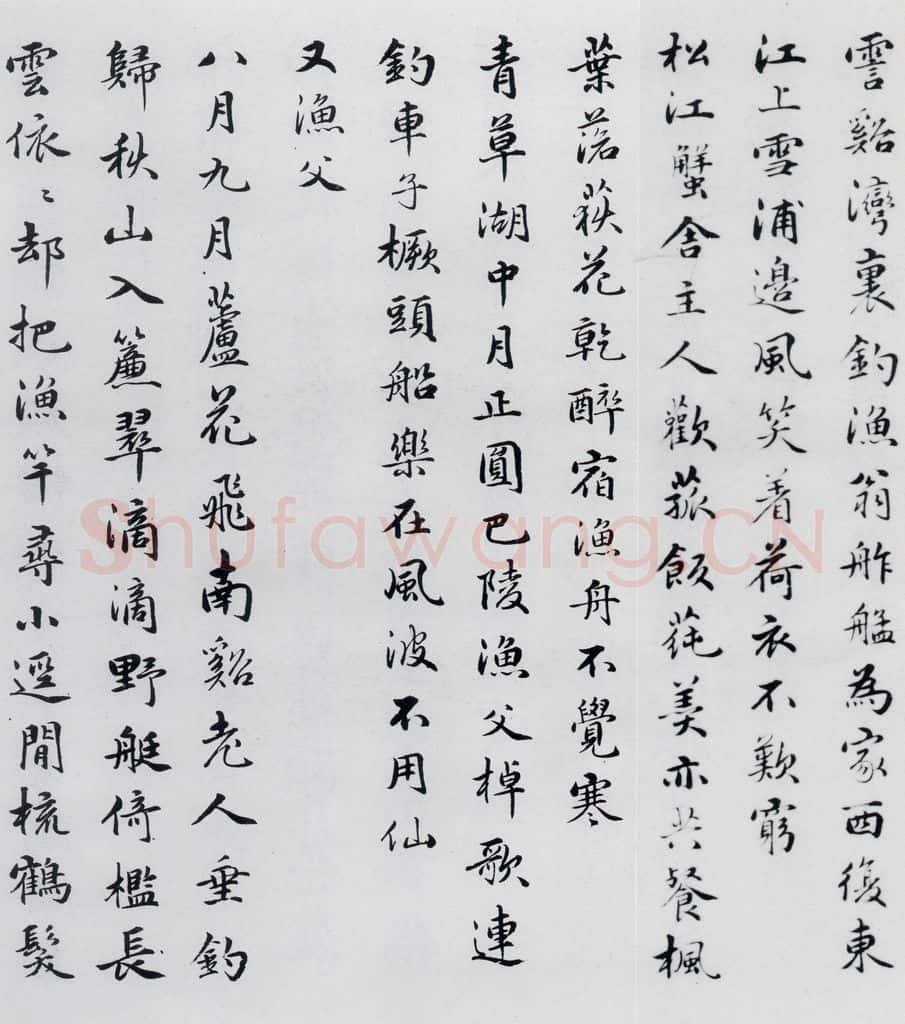 霅谿灣裏釣漁翁舴艋為家西復東
江上雪浦邊風笑着荷衣不歎窮
松江蟹舍主人歡菰飯莼羹亦共餐楓
葉落荻花乾醉宿漁舟不覺寒
青草湖中月正圓巴陵漁父棹歌連
釣車子橛頭船樂在風波不用仙
又漁父
八月九月蘆花飛南谿老人垂釣
歸秋山入簾翠滴滴野艇倚檻長
雲依〻却把漁竿尋小逕閒梳鶴髮
Shufawang.CN